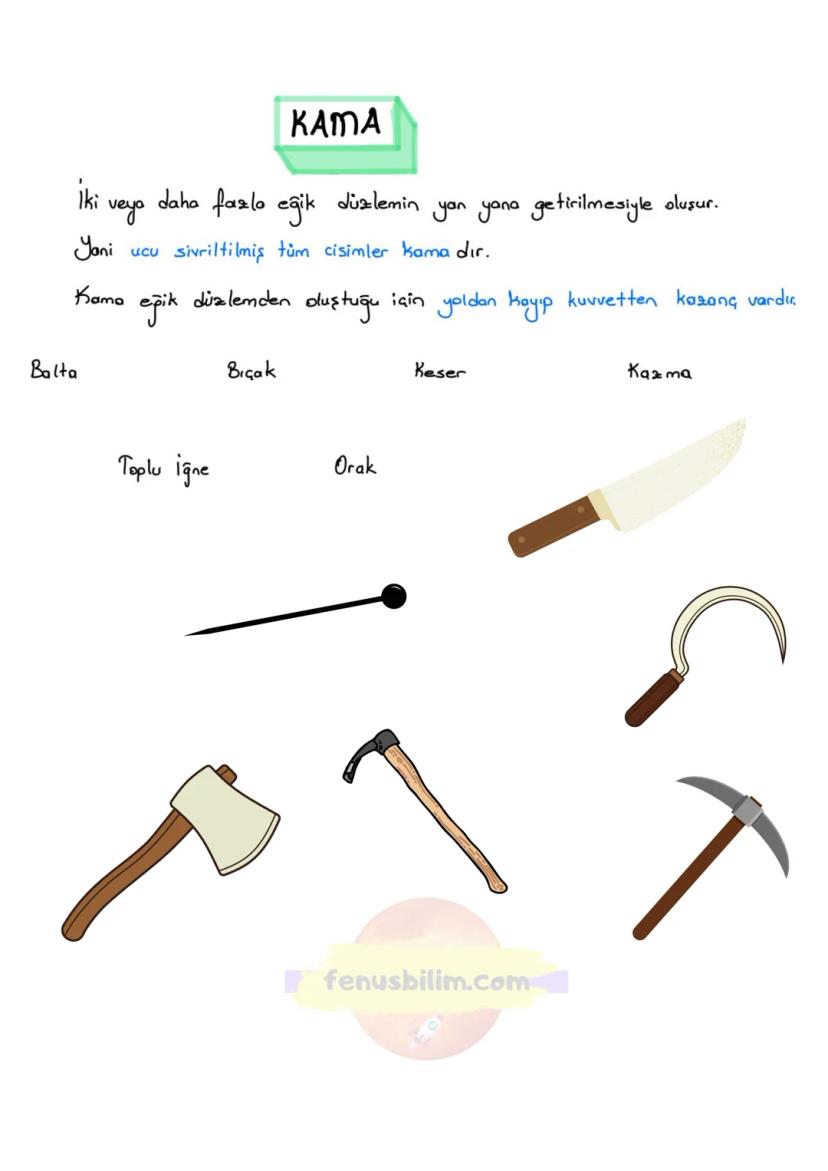 KAMA
İki veya daha fazla eğik düzlemin yan yana getirilmesiyle oluşur.
Yani ucu sivriltilmiş tüm cisimler kama dır.
Kama eğik düzlemden oluştuğu için yoldan kayıp kuvvetten kazanç vardır.
Balta Bıçak Keser Kazma
Toplu İğne Orak
fenusbilim.com